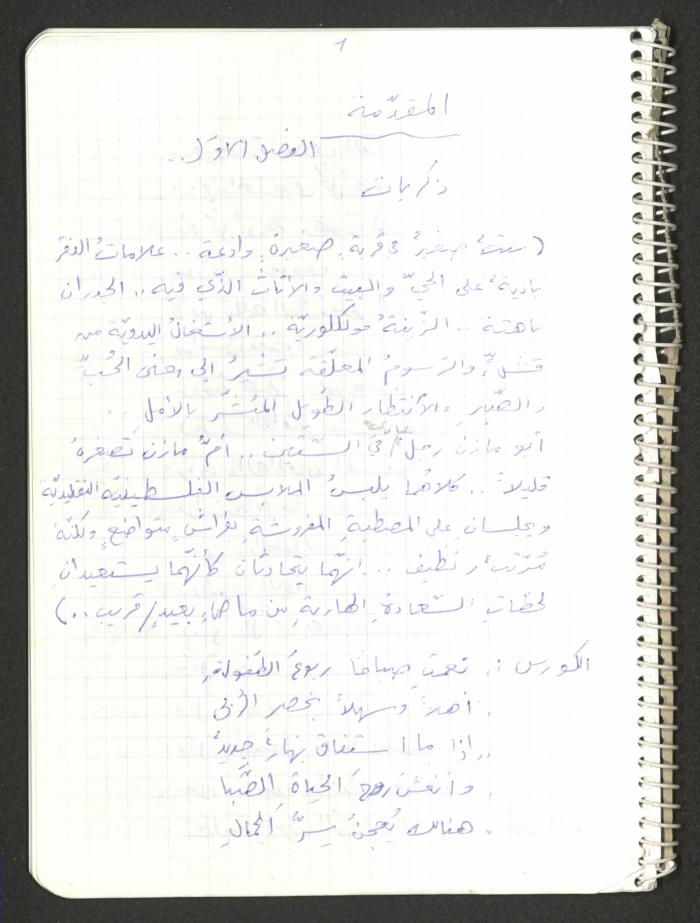 ١
المقدّمة
الفصل الأوّل..
ذكريات
(بيتٌ صغيرٌ في قريةٍ صغيرةٍ وادعة .. علامات الفقر
باديةٌ على الحيّ والبيت والأثاث الذّي فيه.. الجدران
باهتة .. الزّينةُ فولكلوريّة .. الأشغالُ اليدويّة من
قشلٍّ والرّسومُ المعلّقة تشيرُ الى معنى الحُبّ
والصّبرِ والأنتظار الطّويل المُبشّر بالأمل ..
أبو مازن رجلٌ عاديٌّ في السّتّين .. أمّ مازن تَصغرهُ
قليلاً .. كلاهُما يلبسُ الملابس الفلسطينيّة التقليديّة
ويجلسان على المصطبةِ المفروشةِ بفراشٍ متواضعٍ ولكنّهُ
مُرتّبٌ ونظيف .. انّهما يتحادثان كأنّهما يستعيدانِ
لحظاتِ السّعادةِ الهاربةِ من ماضٍ بعيدٍ/قريب ..)
الكورس : . نعمتِ صباحًا ربوعَ الطّفولةِ
. أهلاً وسهلاً بخصر الرُّبى
. إذا ما استفاق نهارٌ جديدٌ
. وأنعشَ روحَ الحياةَ الصَّبا
. هنالك يُعجنُ سِرُّ الجمالِ